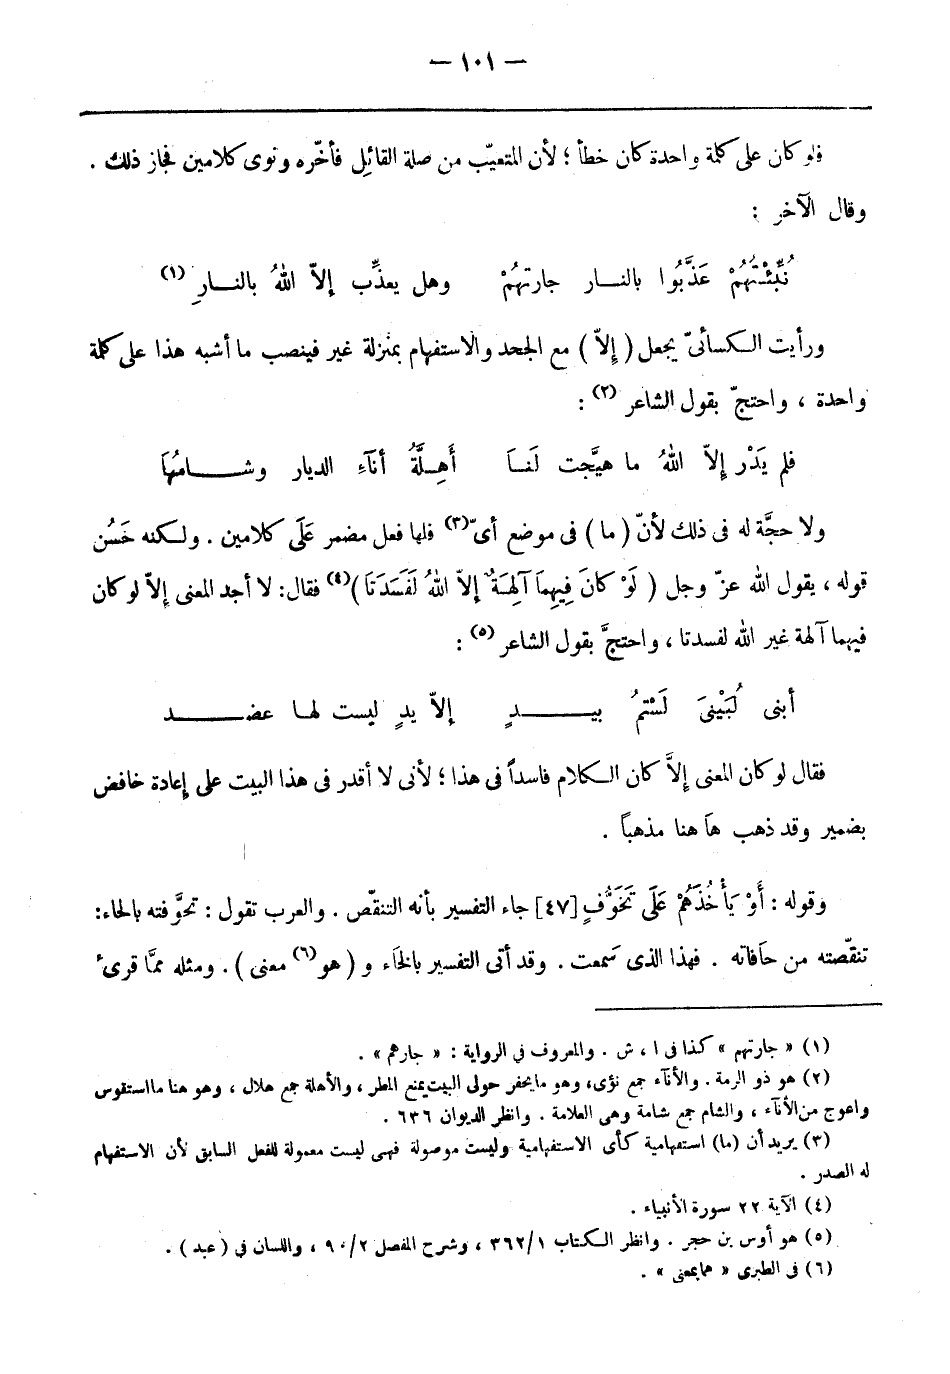 — ١٠١ —
فلو كان على كلمة واحدة كان خطأ ؛ لأن المتعيّب من صلة القائل فأخّره ونوى كلامين فجاز ذلك .
وقال الآخر :
نُبِّئْتُهُمْ عَذَّبُوا بالنــار جارتهُمْ وهل يعذِّب إلاّ اللهُ بالنــارِ (١)
ورأيت الـكسائىّ يجعل ( إلاّ ) مع الجحد والاستفهام بمنزلة غير فينصب ما أشبه هذا على كلمة
واحدة ، واحتجّ بقول الشاعر (٢) :
فلم يَدْر إلاّ اللهُ ما هيَّجت لَنـا أَهِـلَّةُ أنآءِ الديار وشــــامُهَا
ولا حجَّة له فى ذلك لأنّ ( ما ) فى موضع أىّ (٣) فلها فعل مضمر عَلَى كلامين . ولـكنه حَسُن
قوله ، يقول الله عزّ وجل ( لَوْ كانَ فِيهِمَا آلِهَـةٌ إلاّ اللهُ لَفَسَدَتَا )(٤) فقال: لا أجد المعنى إلاّ لو كان
فيهما آلهة غير الله لفسدتا ، واحتجَّ بقول الشاعر (٥) :
أبنى لُبَيْنىَ لَسْتمُ بيـــــدٍ إلاّ يدٍ ليست لهـا عضـــــد
فقال لو كان المعنى إلاَّ كان الـكلام فاسداً فى هذا ؛ لأنى لا أقدر فى هذا البيت على إعادة خافض
بضمير وقد ذهب هَا هنا مذهباً .
وقوله : أَوْ يَأْخُذَهُمْ عَلَى تَخَوُّفٍ [٤٧] جاء التفسير بأنه التنقّص . والعرب تقول : تحوَّفته بالحاء:
تنقّصته من حَافاته . فهذا الذى سَمعت . وقد أتى التفسير بالخَاء و ( هو (٦) معنى ) . ومثله ممَّا قرىء
(١) « جارتهم » كذا فى ا ، ش . والمعروف فى الرواية : « جارهم » .
(٢) هو ذو الرمة . والأنآء جمع نؤى، وهو ما يحفر حولى البيت يمنع المطر ، والأهلة جمع هلال ، وهو هنا ما استقوس
واعوج من الأنآء ، والشام جمع شامة وهى العلامة . وانظر الديوان ٦٣٦ .
(٣) يريد أن (ما) استفهامية كأى الاستفهامية وليست موصولة فهى ليست معمولة للفعل السابق لأن الاستفهام
له الصدر .
(٤) الآية ٢٢ سورة الأنبياء .
(٥) هو أوس بن حجر . وانظر الـكتاب ٣٦٢/١ ، وشرح المفصل ٩٠/٢ ، واللسان فى ( عبد ) .
(٦) فى الطبرى « هما بمعنى » .